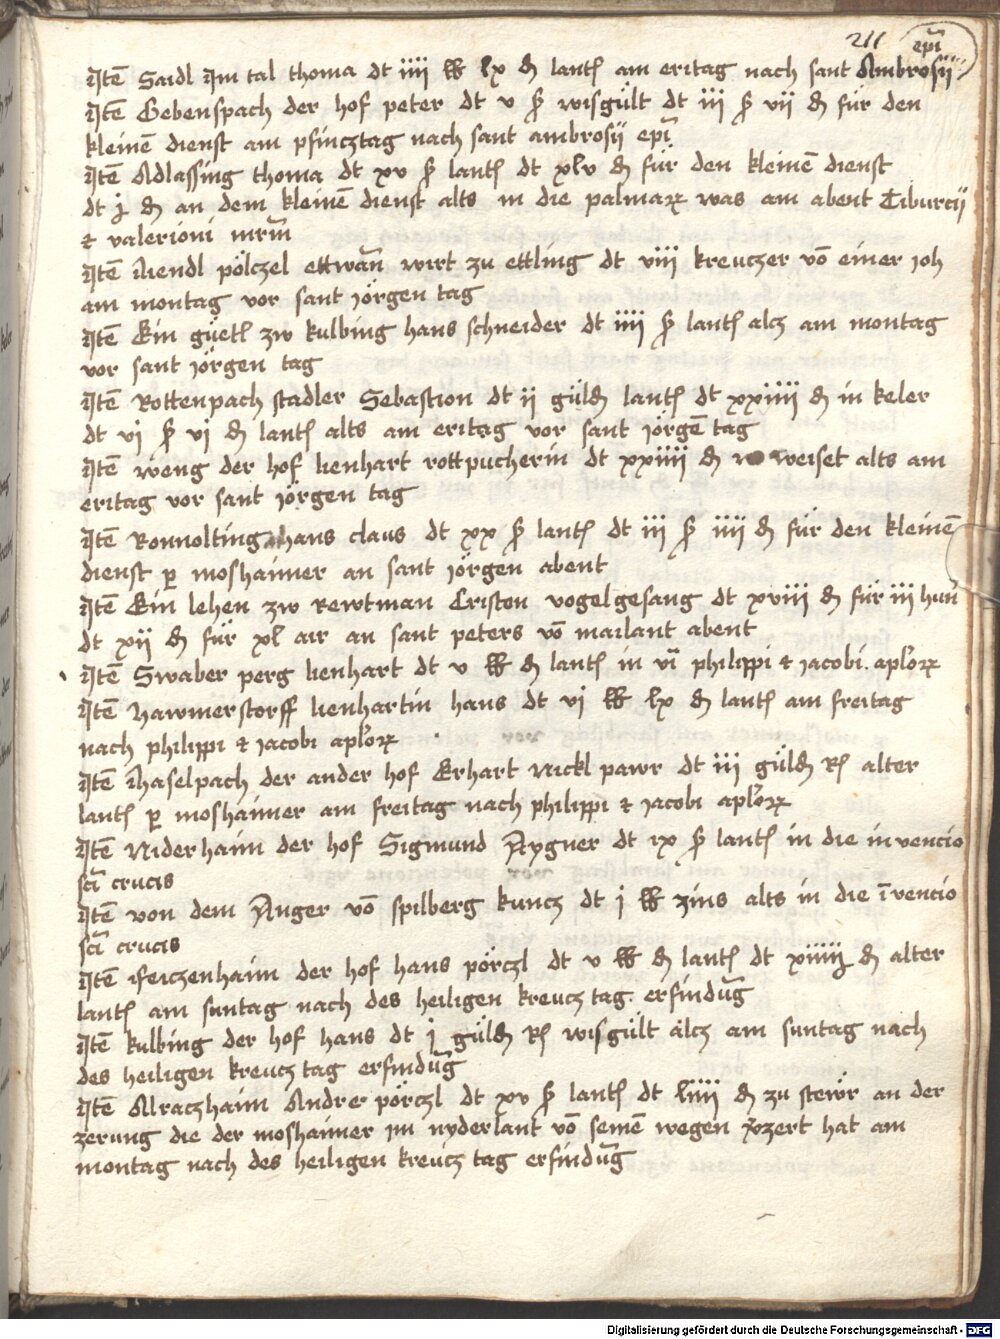 211 epi
Itē Saidl Im tal thoma dt iiii ℔ lx ₰ lantß am eritag nach sant Ambrosij
Itē Gebenspach der hof peter dt v ß wisgült dt iii ß vii ₰ für den
kleinē dienst am pfincztag nach sant ambrosij epi
Itē Adlassing thoma dt xv ß lantß dt xlv ₰ für den kleinē dienst
dt j ₰ an dem kleinē dienst alts in die palmarꝝ was am abent Tiburcij
et valerioni mrm̄
Itē liendl pölczel ettwan̄ wirt zu ettling dt viii kreuczer vō einer joh
am montag vor sant jörgen tag
Itē Ein güetl zw kulbing hans schneider dt iiii ß lantß alcz am montag
vor sant jörgen tag
Itē Rottenpach stadler Sebastion dt ij güld lantß dt xxiiii ₰ in keler
dt vj ß vj ₰ lantß alts am eritag vor sant jörgē tag
Itē weng der hof lienhart rottpucherin dt xxiiii ₰ weiset alts am
eritag vor sant jörgen tag
Itē Ronnolting hans claus dt xx ß lantß dt iii ß iiii ₰ für den kleinē
dienst ꝑ moshaimer an sant jörgen abent
Itē Ein lehen zw Rewtman Criston vogelgesang dt xviii ₰ für iii hun̄
dt xii ₰ für xl air an sant peters vō mailant abent
Itē Swaber perg lienhart dt v ℔ ₰ lantß in vī philippi et jacobi aplorꝝ
Itē Hawmerstorff lienhartin hans dt vj ℔ lx ₰ lantß am freitag
nach philippi et jacobi aplorꝝ
Itē Haselpach der ander hof Erhart Nickl pawr dt iij güld Rß alter
lantß ꝑ moshaimer am freitag nach philippi et jacobi aplorꝝ
Itē Niderhaim der hof Sigmund Aygner dt ix ß lantß in die invencio
sci crucis
Itē von dem Anger vō spilberg kuncz dt j ℔ zins alts in die īvencio
sci crucis
Itē Feiczenhaim der hof hans pörczl dt v ℔ ₰ lantß dt xiiiij ₰ alter
lantß am suntag nach des heiligen kreucz tag erfindūg
Itē kulbing der hof hans dt j güld Rß wisgült älcz am suntag nach
des heiligen kreucz tag erfindūg
Itē Alraczhaim Andre pörczl dt xv ß lantß dt liiii ₰ zu stewr an der
zerung die der moshaimer im nyderlant vō seinē wegen v̄zert hat am
montag nach des heiligen kreucz tag erfindūg
Digitalisierung gefördert durch die Deutsche Forschungsgemeinschaft - DFG